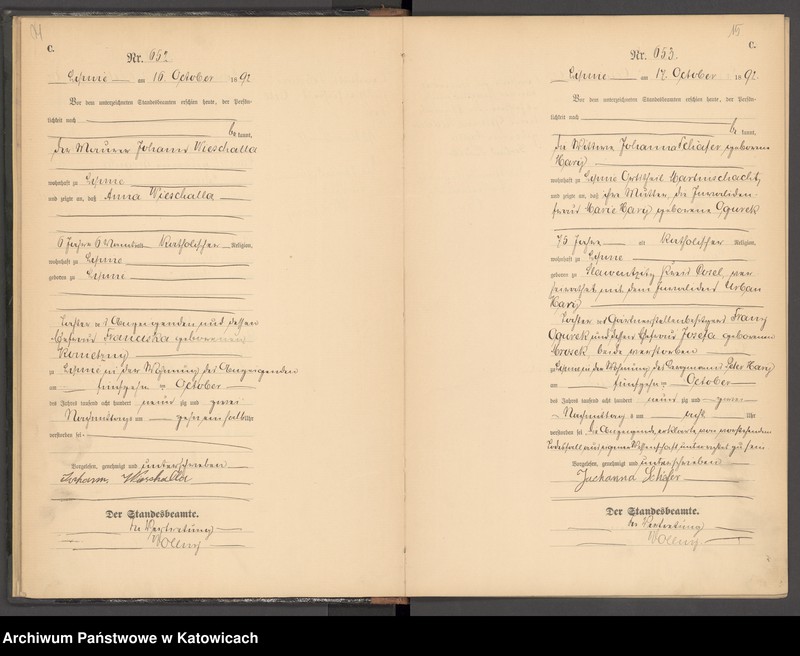 C.
Nr. 652
Lipine am 16. October 1892
Vor dem unterzeichneten Standesbeamten erschien heute, der Persön-
lichkeit nach
be kannt,
der Maurer Johann Wieschalla
wohnhaft zu Lipine
und zeigte an, daß Anna Wieschalla
6 Jahre 6 Monate alt Katholischer Religion,
wohnhaft zu Lipine
geboren zu Lipine
Tochter des Anzeigenden und dessen
Ehefrau Franciska geborenen
zu Lipine in der Wohnung des Anzeigenden
am fünfzehnten October
des Jahres tausend acht hundert neunzig und zwei
Nachmittags um zehn einhalb Uhr
verstorben sei
Vorgelesen, genehmigt und unterschrieben
Johann
Der Standesbeamte.
In Vertretung
C.
Nr. 653
Lipine am 17. October 1892
Vor dem unterzeichneten Standesbeamten erschien heute, der Persön-
lichkeit nach
be kannt,
die Wittwe Johanna Schäfer geborene
wohnhaft zu Lipine Ortstheil Martinschacht
und zeigte an, daß ihre Mutter, die Invaliden-
frau Marie geborene Ogurek
75 Jahre alt Katholischer Religion,
wohnhaft zu Lipine
geboren zu Slawentzitz Kreis Cosel, ver-
heirathet mit dem Invaliden Urban
Tochter des Gärtnerstellenbesitzers Franz
Ogurek und dessen Ehefrau Josefa geborenen
Mrosek beide verstorben
zu Lipine in der Wohnung des Bergmanns Peter
am fünfzehnten October
des Jahres tausend acht hundert neunzig und zwei
Nachmittags um acht Uhr
verstorben sei. Die Anzeigende erklärte, von vorstehendem
Todesfall aus eigener Wissenschaft unterrichtet zu sein
Vorgelesen, genehmigt und unterschrieben
Johanna Schäfer
Der Standesbeamte.
In Vertretung
Archiwum Państwowe w Katowicach